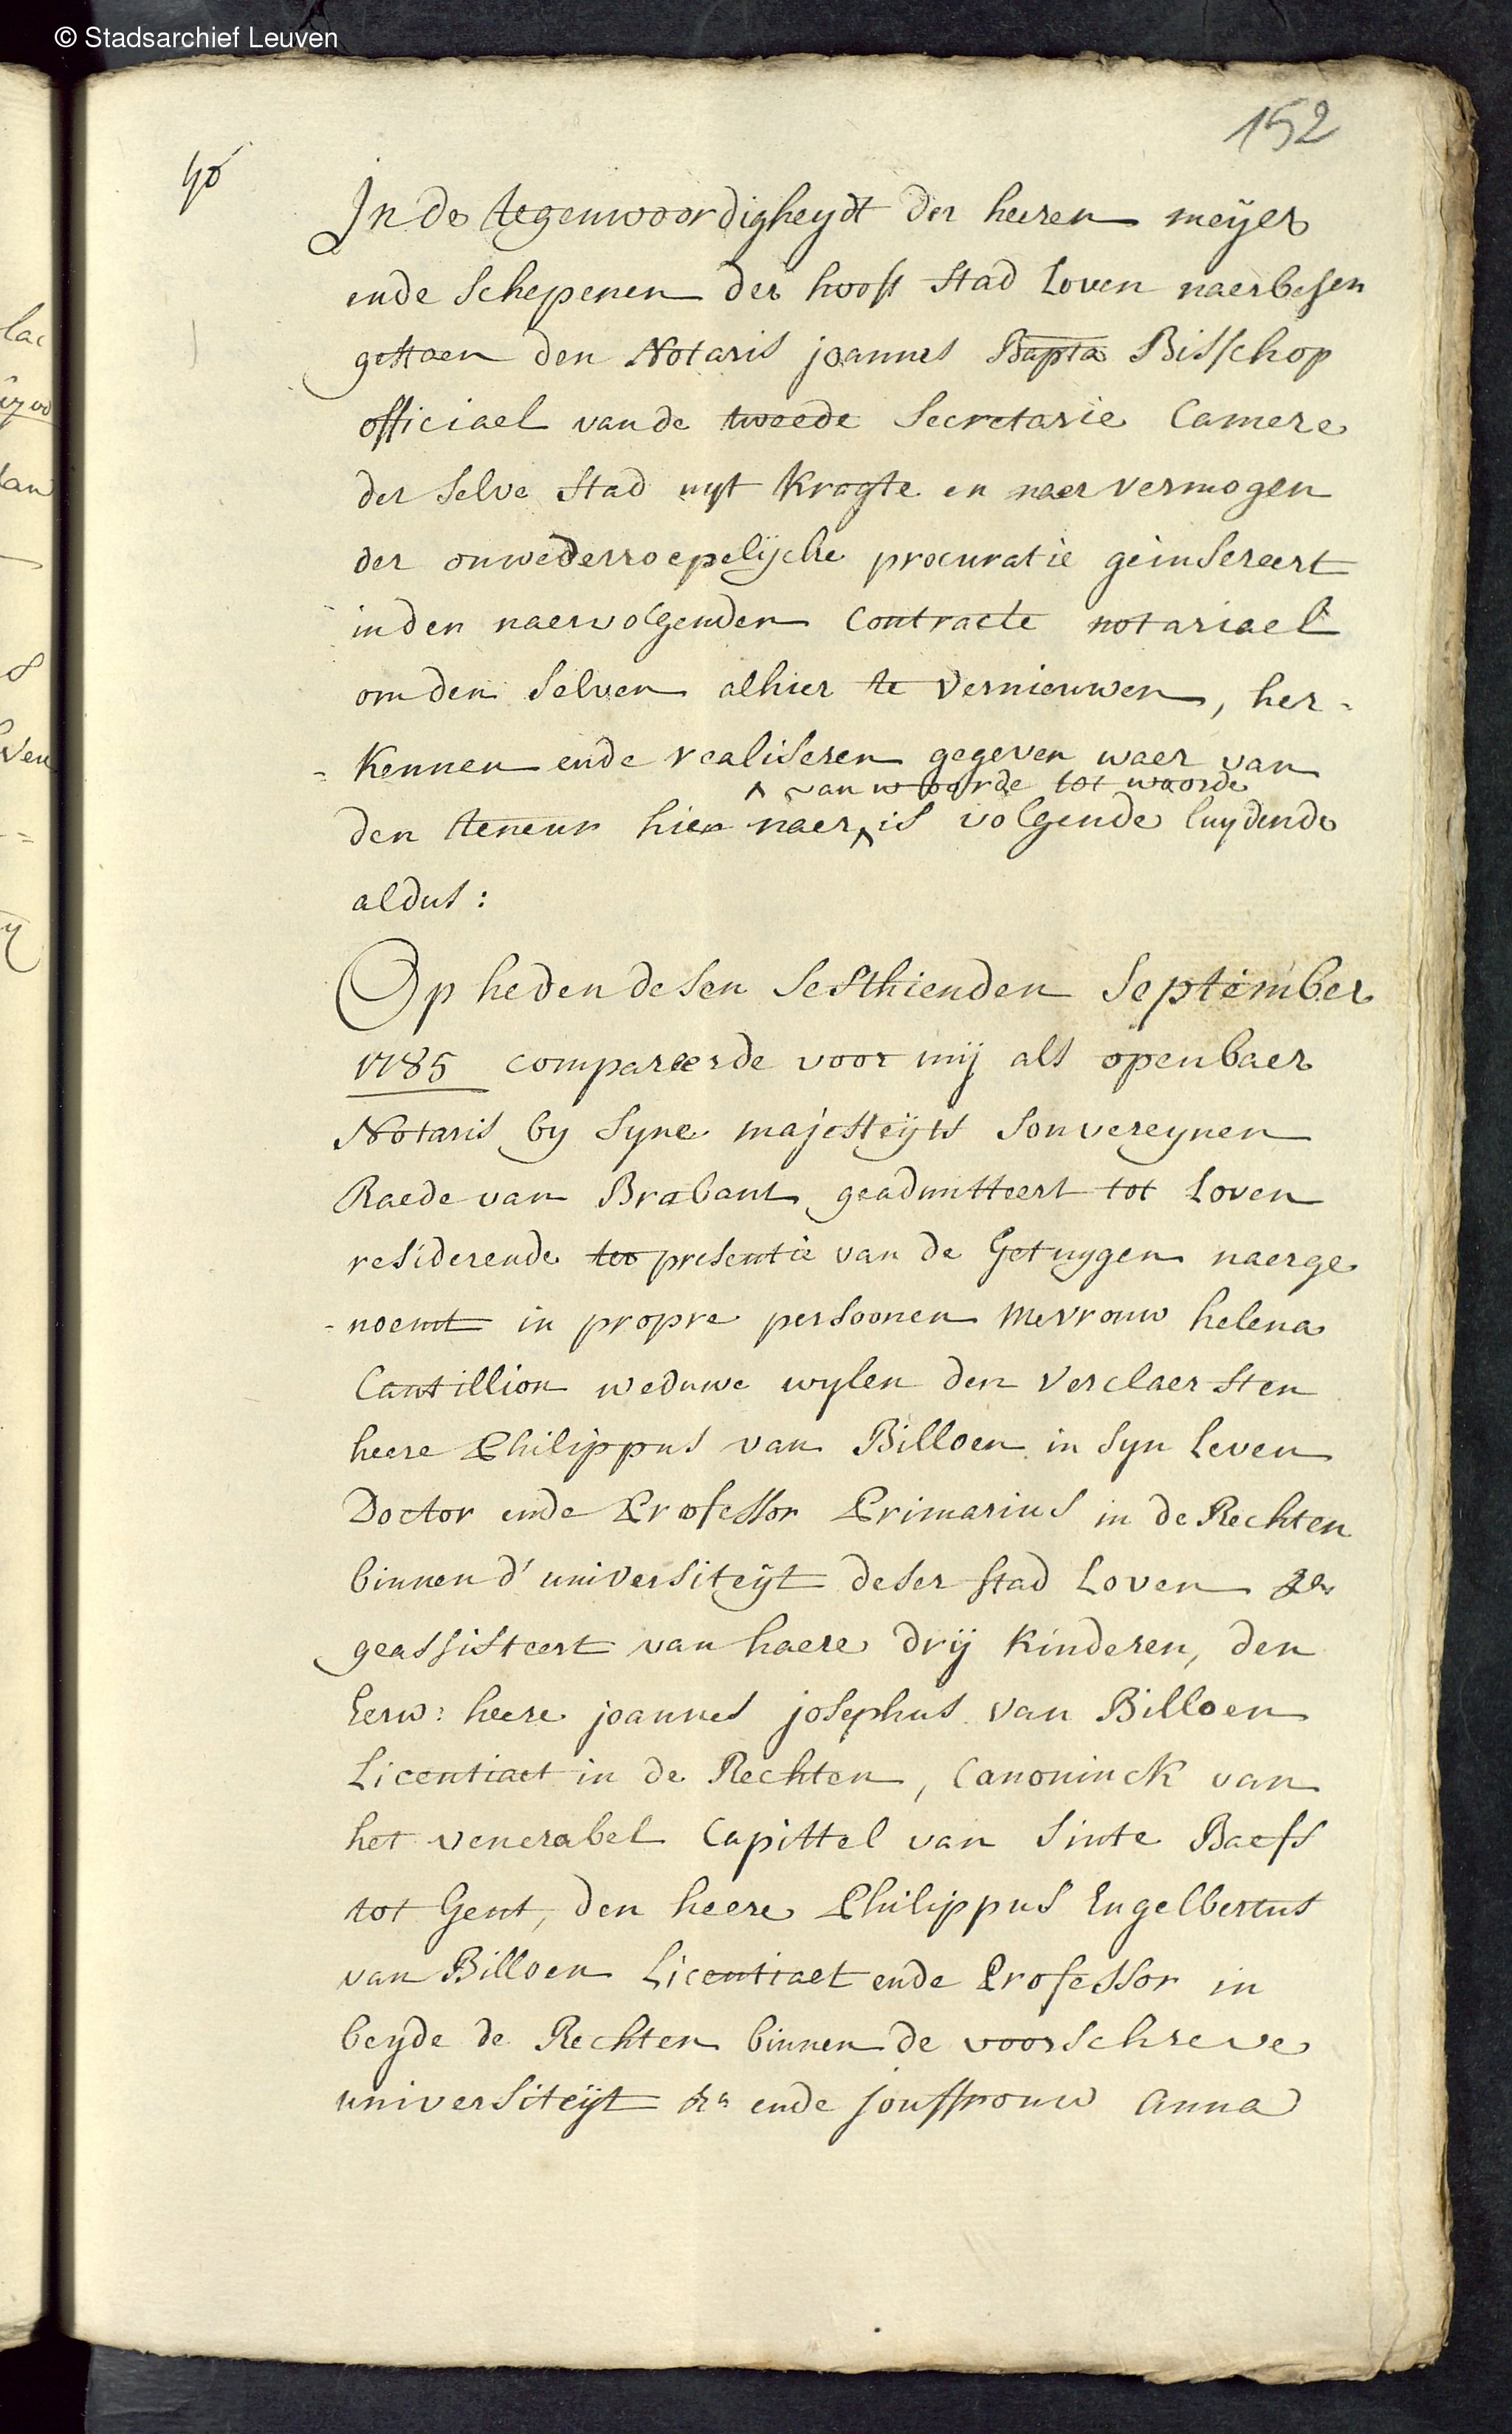 © Stadsarchief Leuven
152
In de tegenwoordigheydt der heeren meÿer
ende Schepenen der hooft Stad Loven naerbesen
gestaen den Notaris joannes Bapta Bisschop
officiael van de tweede Secretarie Camere
der Selve Stad uyt kragte en naer vermogen
der onwederroepelÿcke procuratie geinsereert
in den naervolgenden Contracte notariael
om den Selven alhier te vernieuwen, her-
-kennen ende realiseren gegeven waer van
van woorde tot woorde
den teneur hier naer is volgende luydende
aldus:
Op heden desen Sesthienden September
1785 compareerde voor mij als openbaer
Notaris by Syne majesteÿts Souvereynen
Raede van Brabant geadmitteert tot Loven
residerende ter presentie van de Getuygen naerge
-noemt in propre persoonen Mevrouw helena
Cantillion weduwe wylen den Verclaersten
heere Philippus van Billoen in Syn Leven
Doctor ende Professor Primarius in de Rechten
binnen d'universiteÿt deser Stad Loven &a
geassisteert van haere drÿ kinderen, den
Eerw: heere joannes josephus van Billoen
Licentiaet in de Rechten, Canoninck van
het venerabel Capittel van Sinte Baefs
tot Gent, den heere Philippus Engelbertus
van Billoen Licentiaet ende Professor in
beyde de Rechten binnen de voorschreve
universiteÿt &a ende jouffrouw Anna